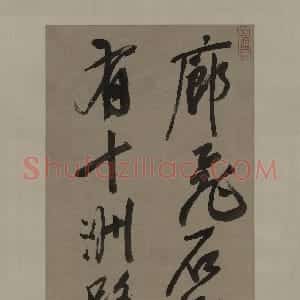 廊石
有十洲路
Shufaziliao.com